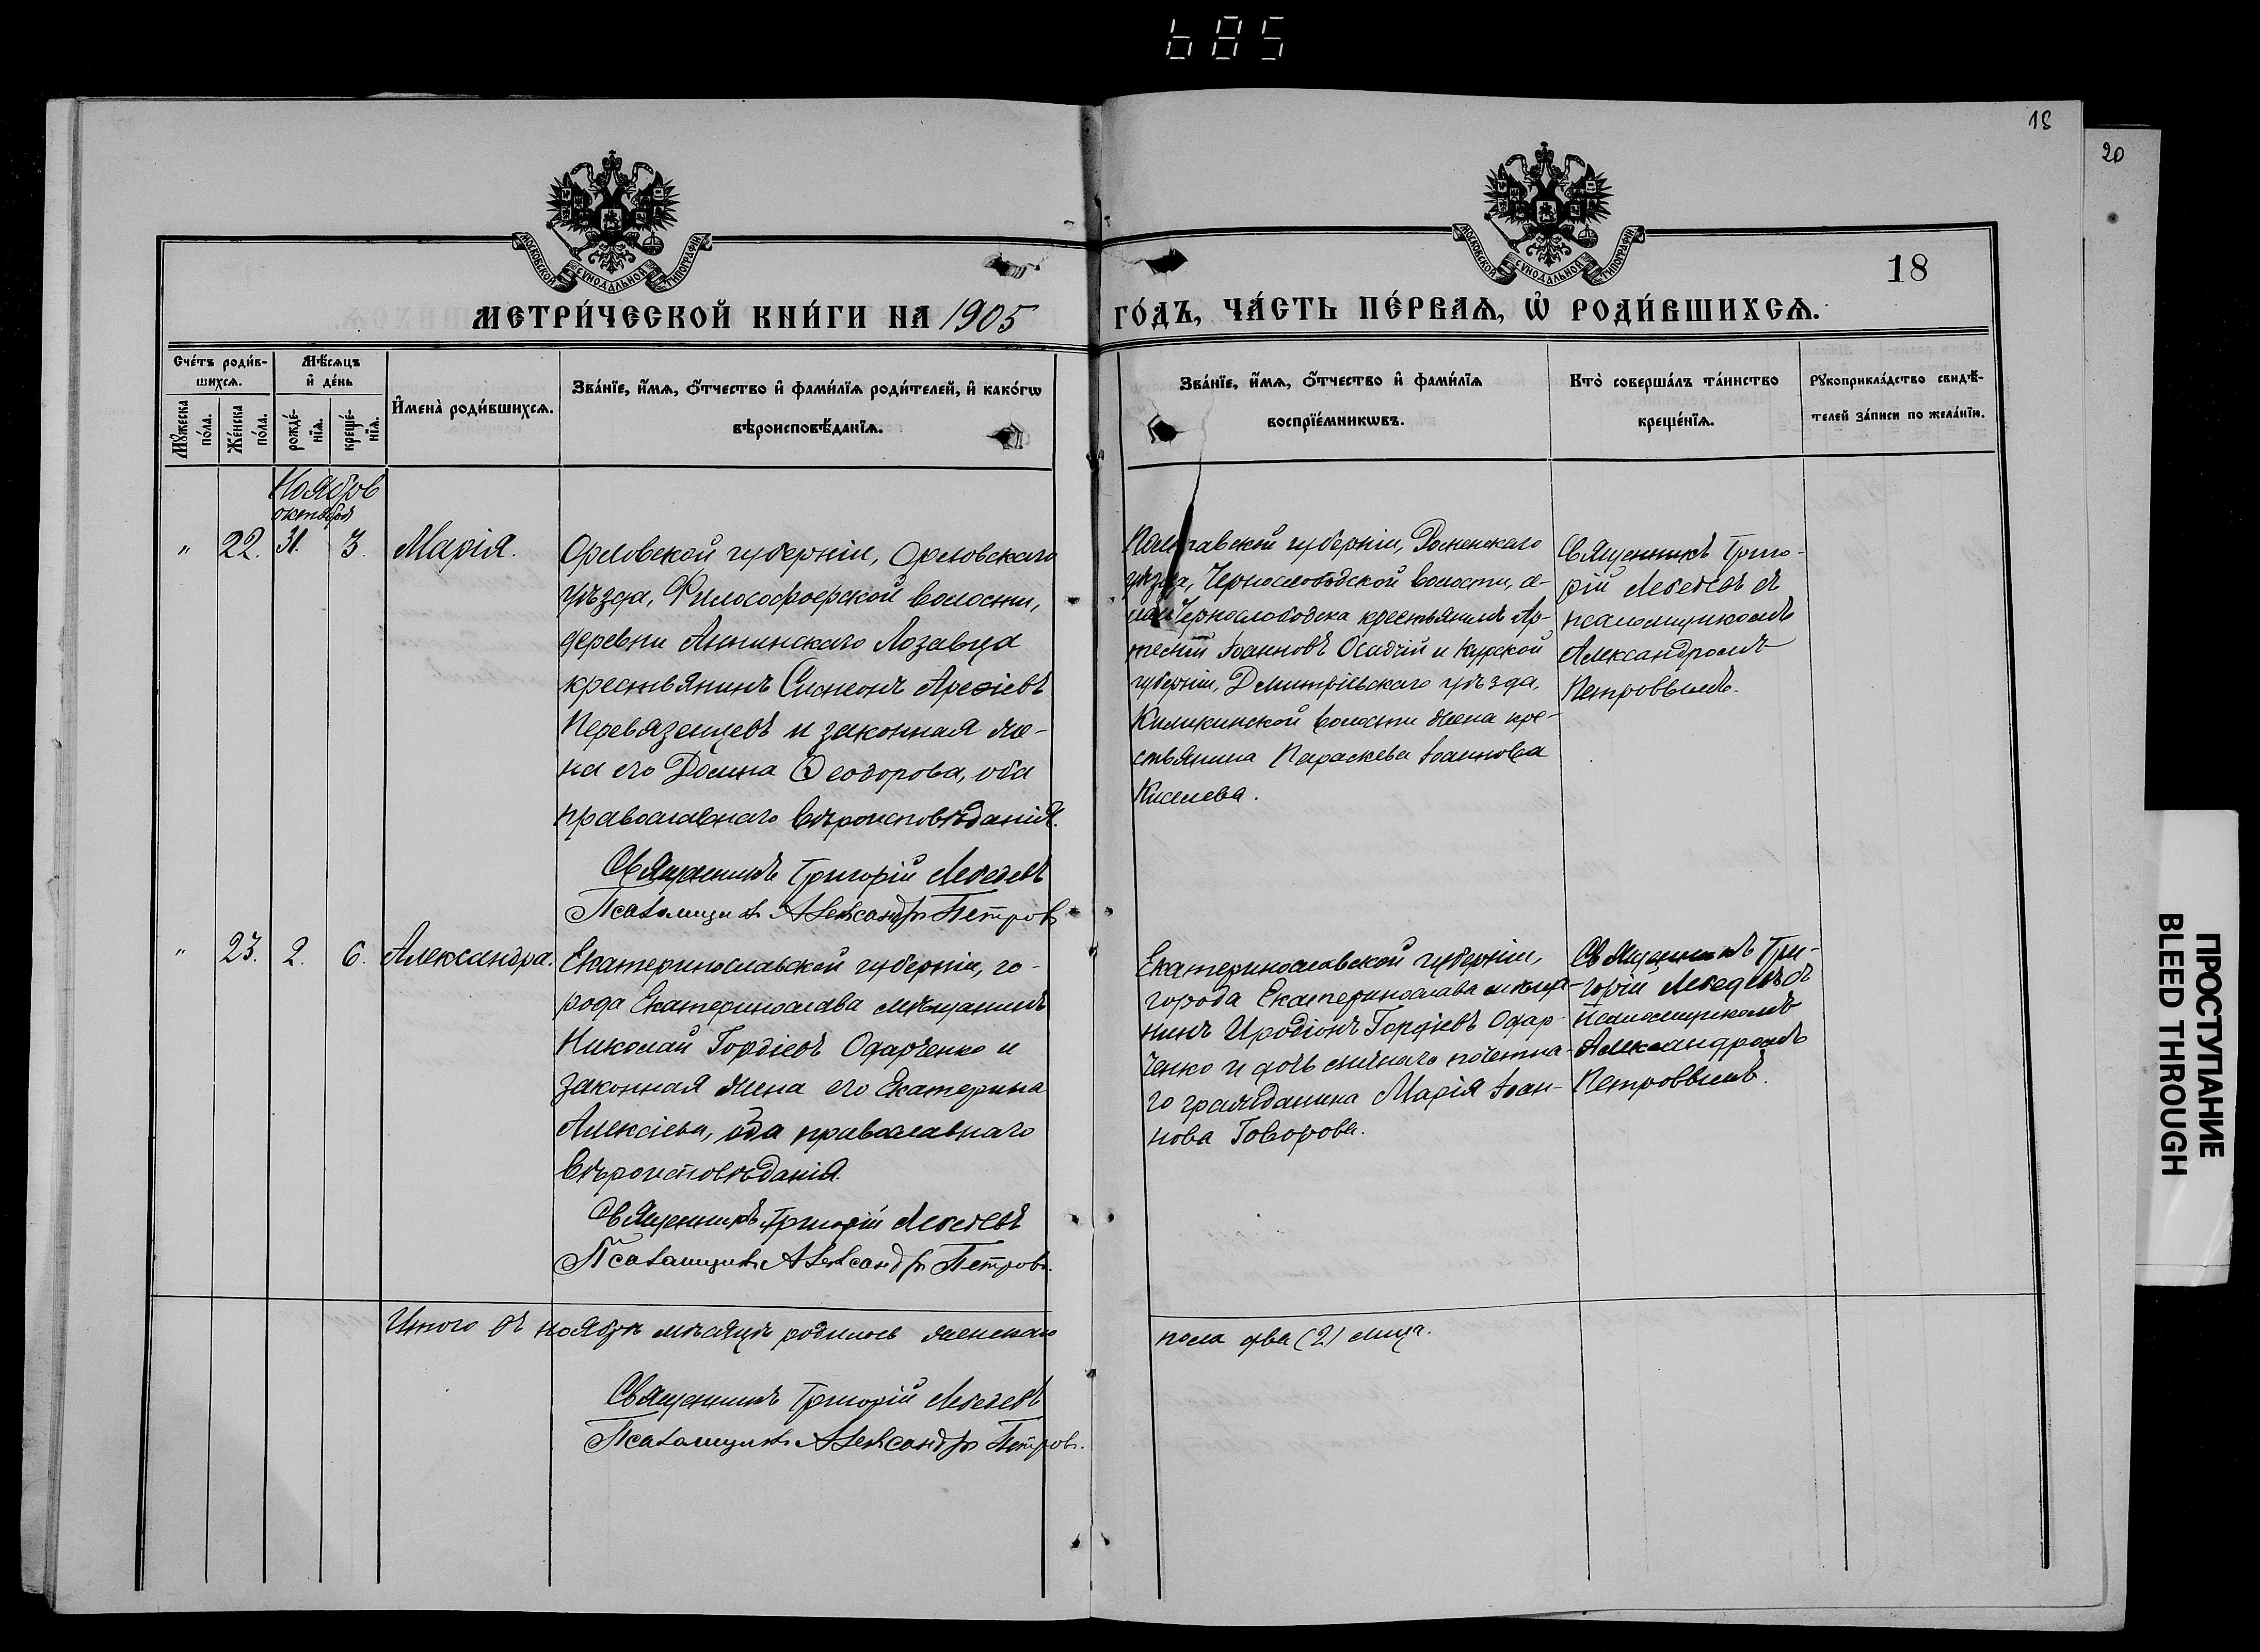 685
18
20
МОСКОВСКОЙ СУНОДАЛЬНОЙ ТИПОГРАФІИ
МОСКОВСКОЙ СУНОДАЛЬНОЙ ТИПОГРАФІИ
18
МЕТРИ́ЧЕСКОЙ КНИ́ГИ НА 1905
ГО́ДЪ, ЧА́СТЬ ПЕ́РВАѦ, Ѡ҆ РОДИ́ВШИХСѦ.
Сче́тъ роди́в-
шихсѧ.
Мꙋ́жеска
по́ла.
Же́нска
по́ла.
Мѣ́сѧцъ
и҆ де́нь
рожде́-
нїѧ.
креще́-
нїѧ.
И҆мена̀ роди́вшихсѧ.
Зва́нїе, и҆́мѧ, ѻ҆́тчество и҆ фами́лїѧ роди́телей, и҆ како́гѡ
вѣроисповѣ́данїѧ.
Зва́нїе, и҆́мѧ, ѻ҆́тчество и҆ фами́лїѧ
воспрїе́мникѡвъ.
Кто̀ соверша́лъ та́инство
креще́нїѧ.
Рꙋкоприкла́дство свидѣ́-
телей за́писи по жела́нїю.
Ноябрь
октября
" 22. 31. 3. Марія.
Орловской губерніи, Орловскаго
уѣзда, Философоврской волости,
деревни Аннинскаго Лозавца
крестьянинъ Симеонъ Арефіевъ
Перевязенцевъ и законная же-
на его Домна Ѳеодорова, оба
православнаго вѣроисповѣданія.
Священникъ Григорій Лебедевъ
Псаломщикъ Александръ Петровъ
Полтавской губерніи, Роменскаго
уѣзда, Чернослободской волости, се-
ла Чернослободска крестьянинъ Ар-
темій Іоанновъ Осадчій и Курской
губерніи, Дмитріевскаго уѣзда,
Киликинской волости жена кре-
стьянина Параскева Іоаннова
Киселева.
Священникъ Григо-
рій Лебедевъ съ
псаломщикомъ
Александромъ
Петровымъ.
" 23. 2. 6. Александра.
Екатеринославской губерніи, го-
рода Екатеринослава мѣщанинъ
Николай Гордіевъ Одарченко и
законная жена его Екатерина
Алексіева, оба православнаго
вѣроисповѣданія.
Священникъ Григорій Лебедевъ
Псаломщикъ Александръ Петровъ.
Екатеринославской губерніи,
города Екатеринослава мѣща-
нинъ Иродіонъ Гордіевъ Одар-
ченко и дочь личнаго почетна-
го гражданина Марія Іоан-
нова Говорова.
Священникъ Гри-
горій Лебедевъ съ
псаломщикомъ
Александромъ
Петровымъ.
Итого въ ноябрѣ мѣсяцѣ родилось женскаго
пола два (2) лица.
Священникъ Григорій Лебедевъ
Псаломщикъ Александръ Петровъ.
ПРОСТУПАНИЕ
BLEED THROUGH